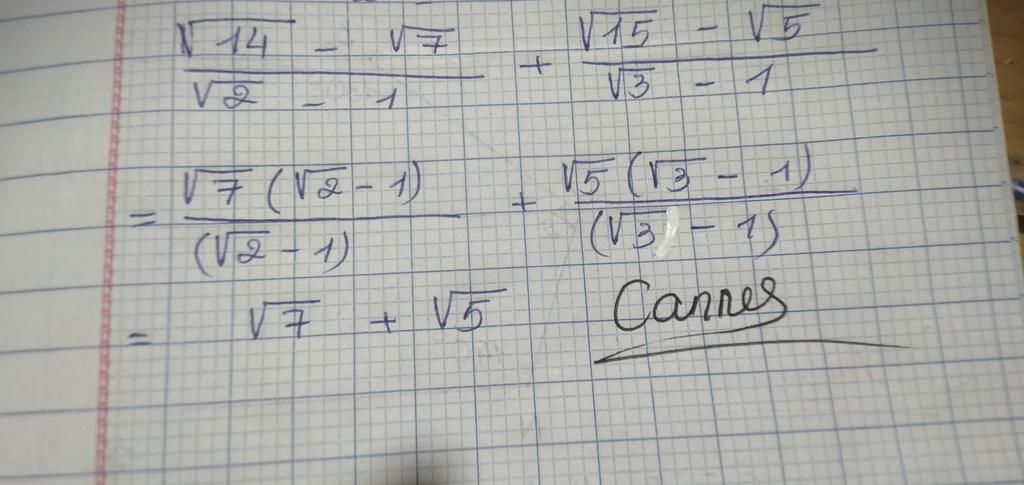 (√14 - √7)/(√2 - 1) + (√15 - √5)/(√3 - 1)
= (√7 (√2 - 1))/((√2 - 1)) + (√5 (√3 - 1))/((√3 - 1))
= √7 + √5 Cannes